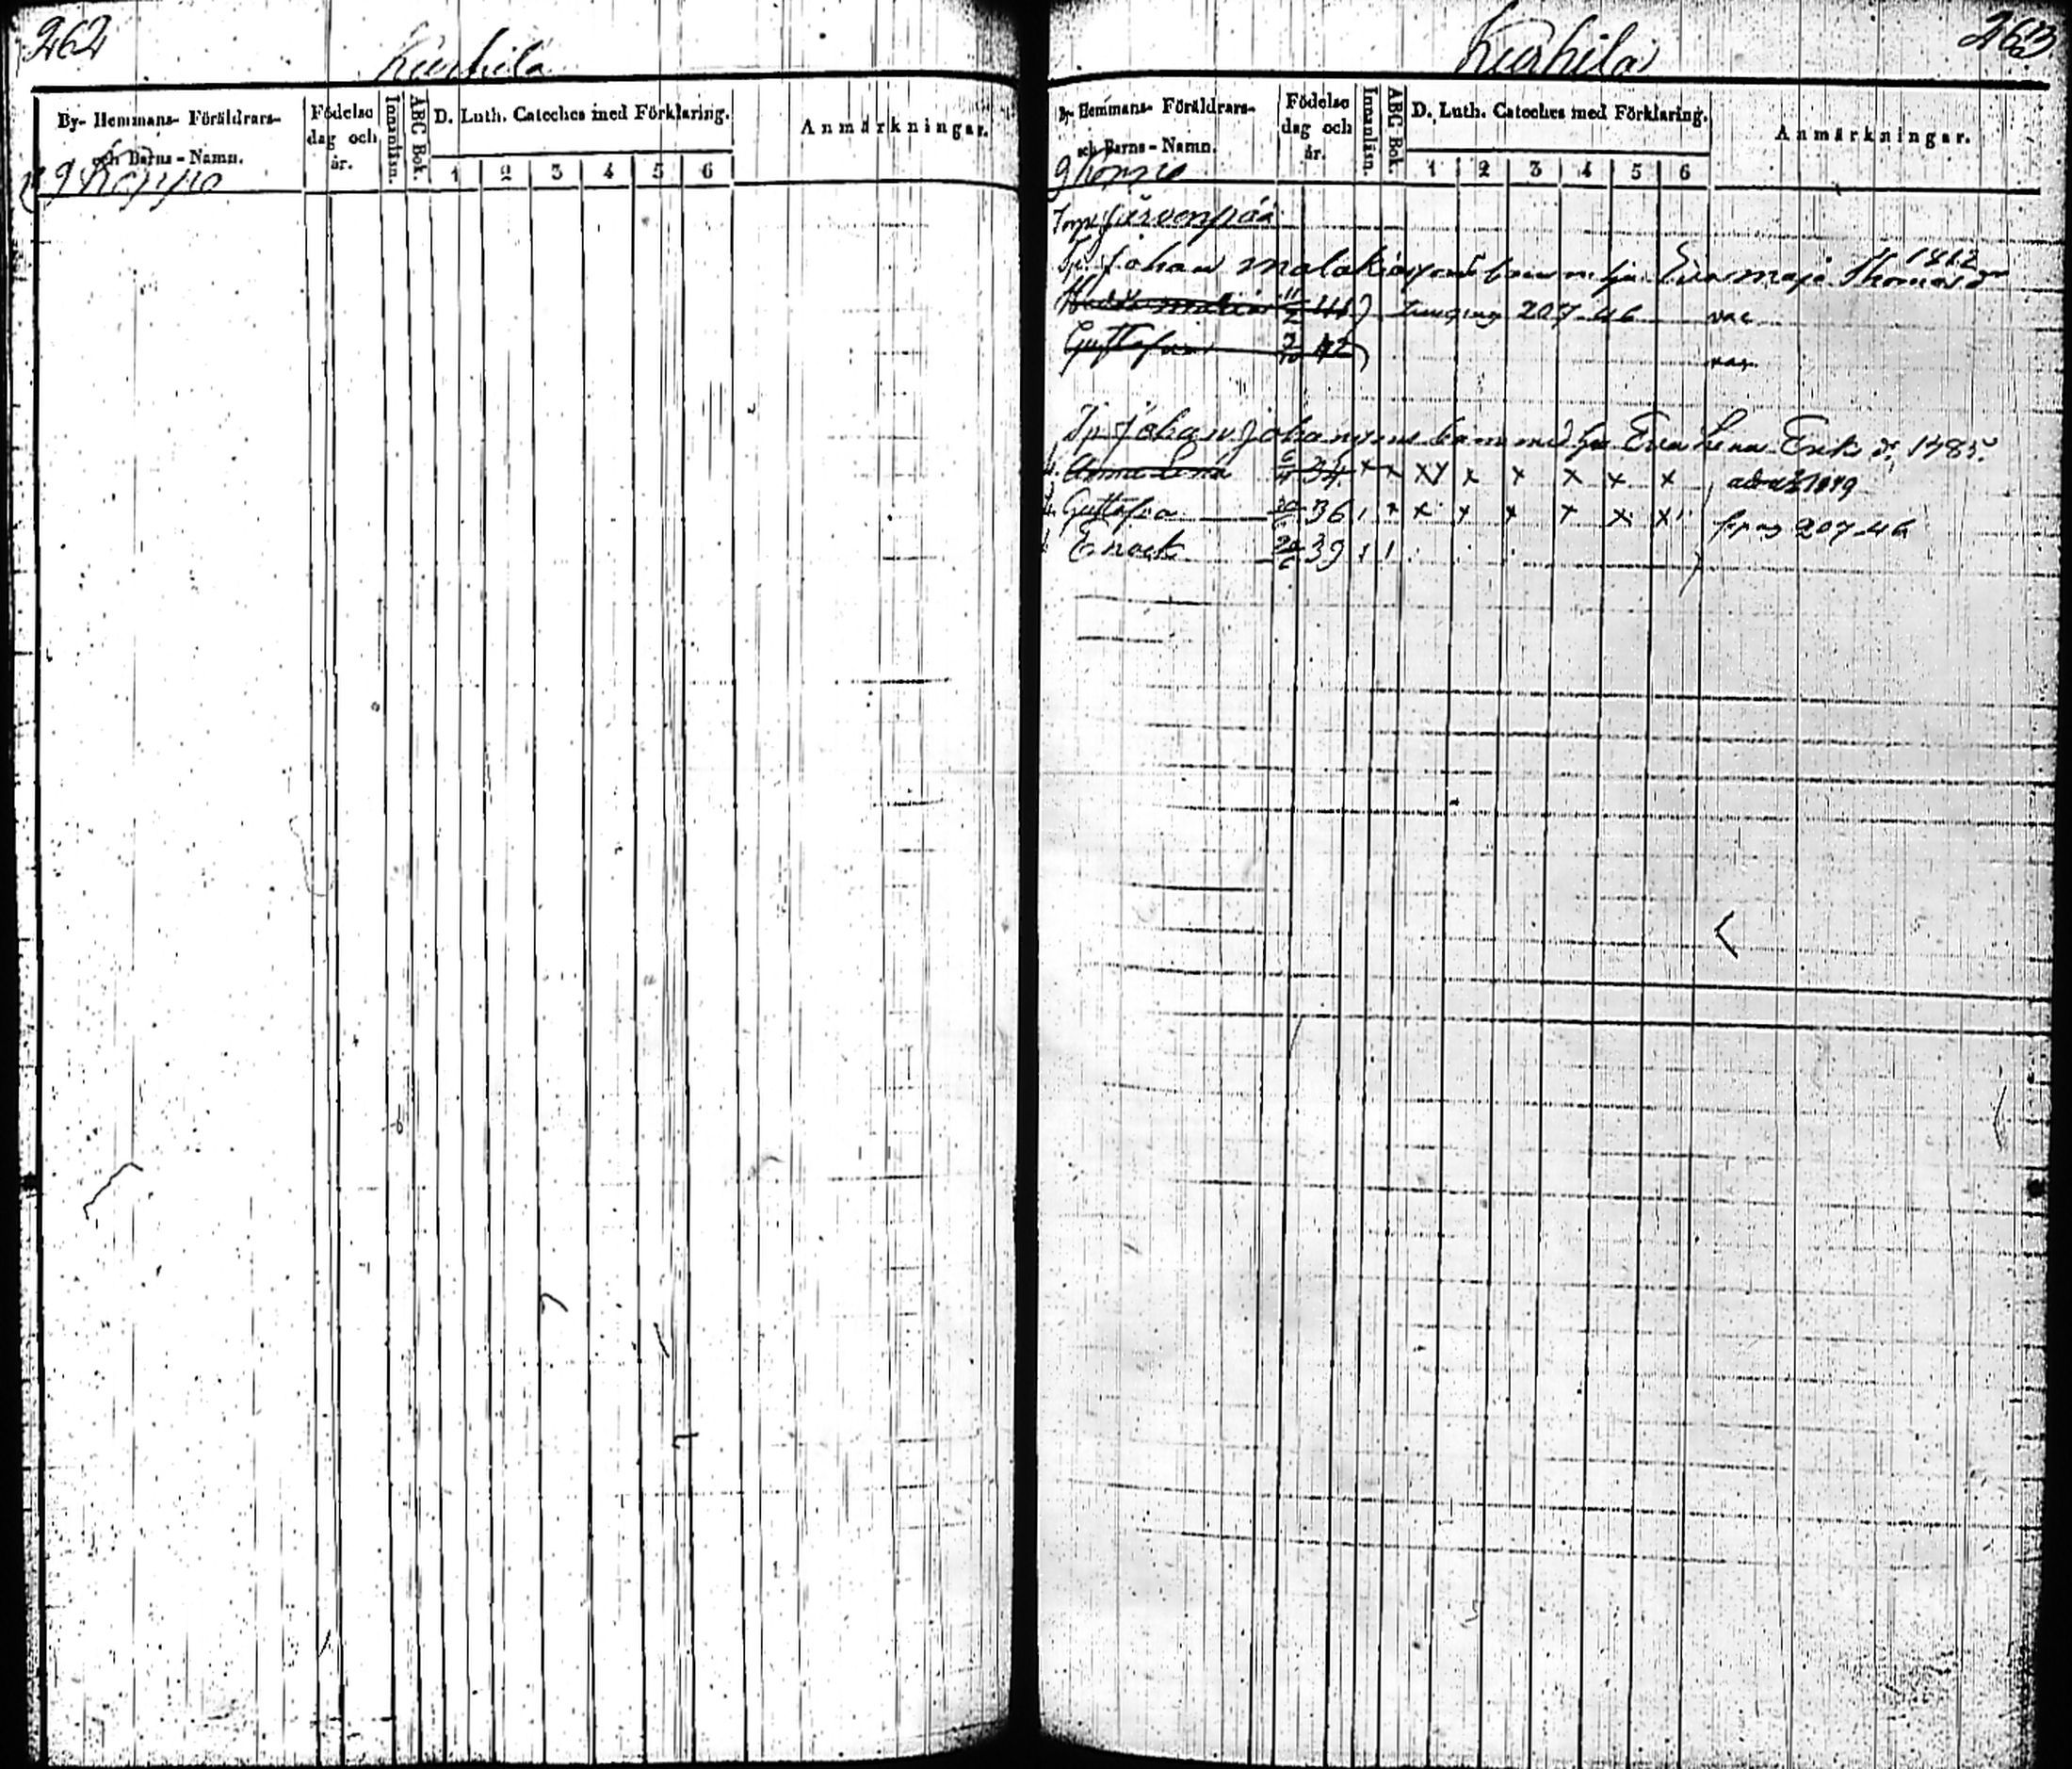 262
Kurhila
By- Hemmans- Föräldrars-
och Barns-Namn.
Födelse
dag och
år.
Innanläsn.
ABC Bok.
D. Luth. Cateches med Förklaring.
1 2 3 4 5 6
Anmärkningar.
9 Koppo
Kurhila
263
By- Hemmans- Föräldrars-
och Barns-Namn.
Födelse
dag och
år.
Innanläsn.
ABC Bok.
D. Luth. Cateches med Förklaring.
1 2 3 4 5 6
Anmärkningar.
Torp Järvenpää
1812
Johan Malakias Eva Maja Thomasd
11 41 207-46 vac
Gustafva 42 vac
Johan Johans barn med Eva Lena Eriks d. 1785
Anna Lena 6/4 34 x x x x x x x 1849
Gustafva 36 x x x x x x 207-46
Enock 39